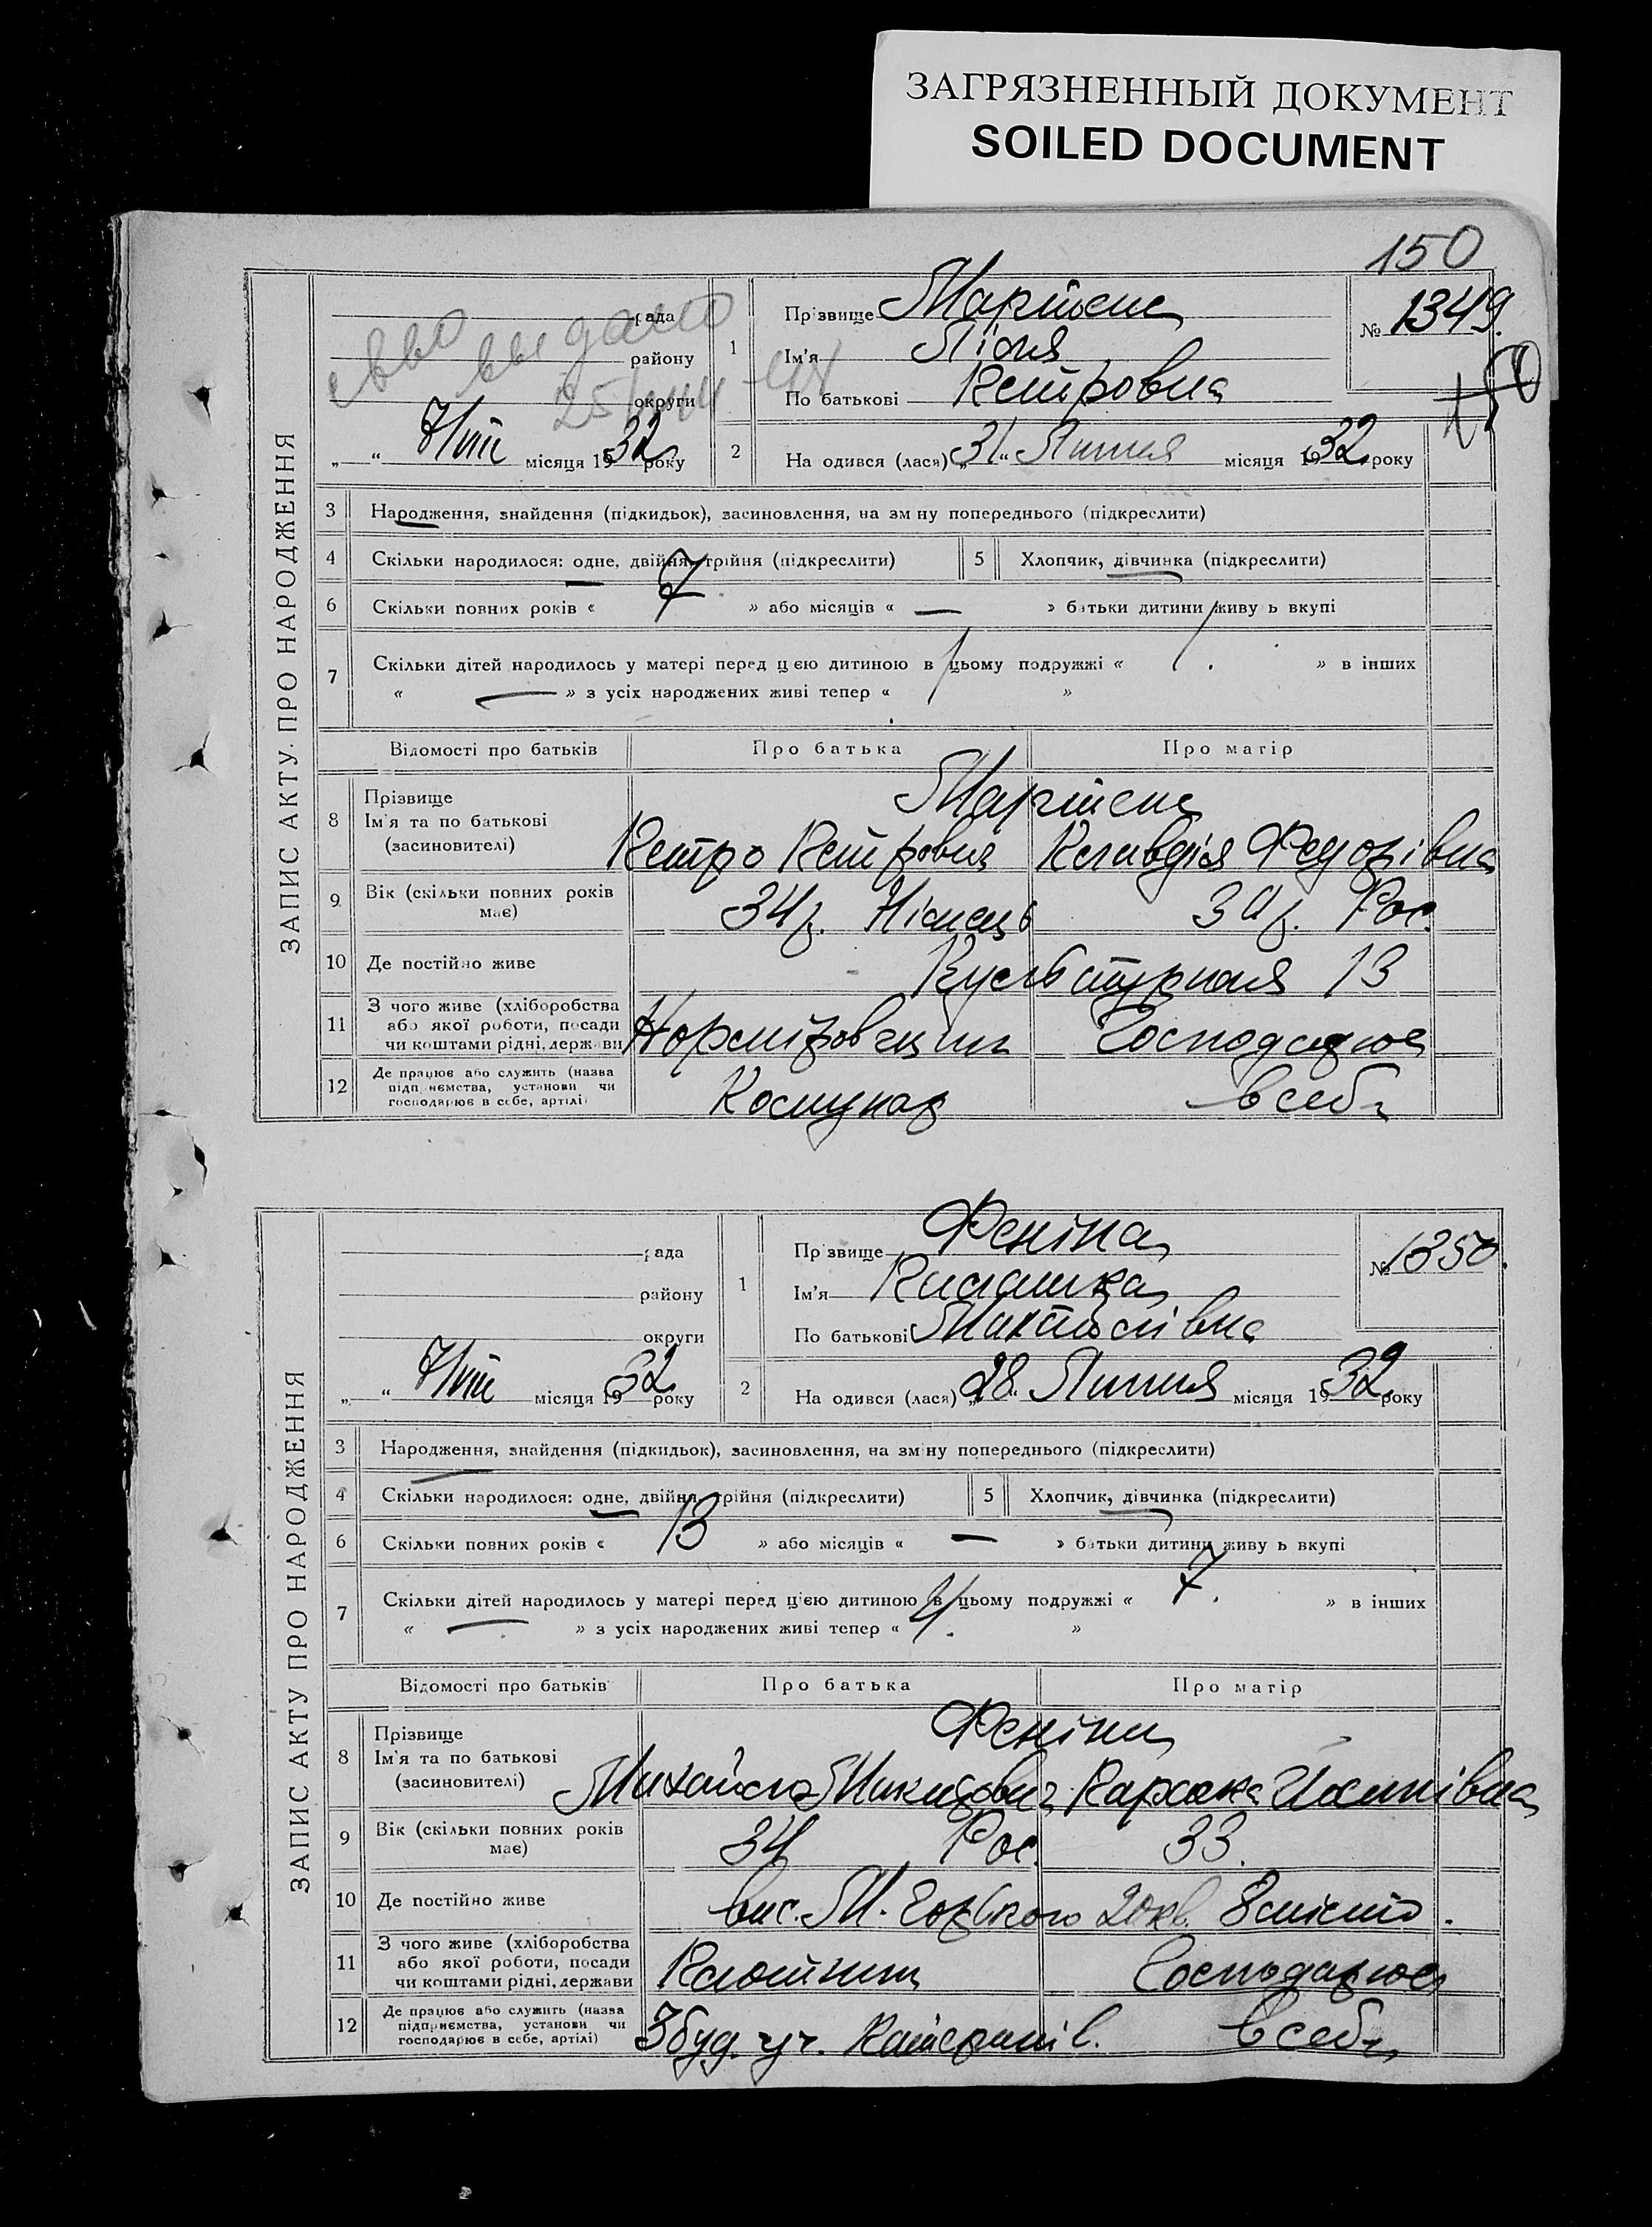 ЗАГРЯЗНЕННЫЙ ДОКУМЕНТ
SOILED DOCUMENT
150
ЗАПИС АКТУ ПРО НАРОДЖЕННЯ
рада
району
округи
„ “ 7/VIII місяця 1932 року
1
Прізвище Мартенс
Ім'я Лідія
По батькові Петровна
№ 1349.
150
2
Народився (лася) „31“ Липня місяця 1932 року
3 Народження, знайдення (підкидьок), засиновлення, на зміну попереднього (підкреслити)
4 Скільки народилося: одне, двійня, трійня (підкреслити)
5 Хлопчик, дівчинка (підкреслити)
6 Скільки повних років « 7 » або місяців « — » батьки дитини живуть вкупі
7 Скільки дітей народилось у матері перед цією дитиною в цьому подружжі « 1. » в інших
« — » з усіх народжених живі тепер « 1 »
Відомості про батьків Про батька Про матір
8 Прізвище
Ім'я та по батькові
(засиновителі)
Мартенс
Петро Петрович Клавдія Федорівна
9 Вік (скільки повних років має) 34р. Німець Рос.
10 Де постійно живе Культурная 13
11 З чого живе (хліборобства або якої роботи, посади чи коштами рідні, держави Норміровщик Господарює
12 Де працює або служить (назва підприємства, установи чи господарює в себе, артілі) Комунар в себе
ЗАПИС АКТУ ПРО НАРОДЖЕННЯ
рада
району
округи
„ “ 7/VIII місяця 1932 року
1
Прізвище Феніна
Ім'я
По батькові Михайлівна
№ 1350.
2
Народився (лася) „28“ Липня місяця 1932 року
3 Народження, знайдення (підкидьок), засиновлення, на зміну попереднього (підкреслити)
4 Скільки народилося: одне, двійня, трійня (підкреслити)
5 Хлопчик, дівчинка (підкреслити)
6 Скільки повних років « 13 » або місяців « — » батьки дитини живуть вкупі
7 Скільки дітей народилось у матері перед цією дитиною в цьому подружжі « 7. » в інших
« — » з усіх народжених живі тепер « 4. »
Відомості про батьків Про батька Про матір
8 Прізвище
Ім'я та по батькові
(засиновителі)
Феніни
Михайло Микитович
9 Вік (скільки повних років має) 34 Рос. 33.
10 Де постійно живе вис. М. Горького 20кв. 8 місто.
11 З чого живе (хліборобства або якої роботи, посади чи коштами рідні, держави Господарює
12 Де працює або служить (назва підприємства, установи чи господарює в себе, артілі) 3 буд. уч. в себе